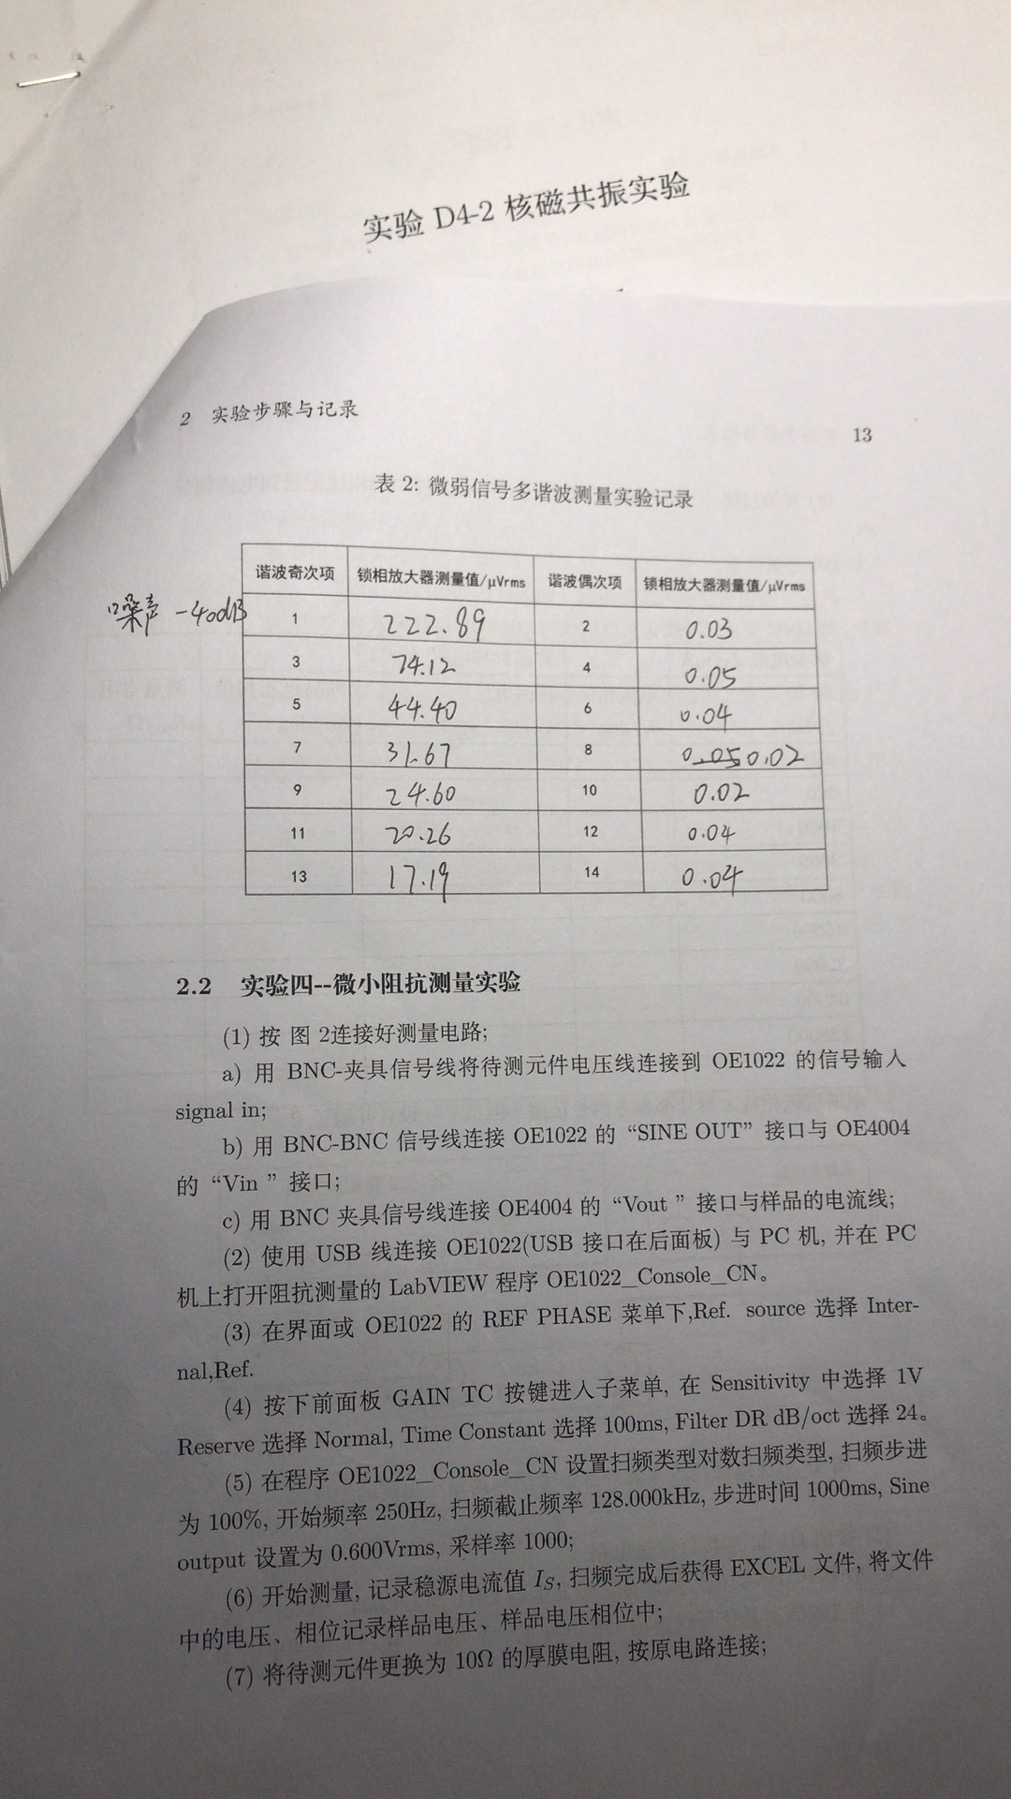 实验 D4-2 核磁共振实验
2 实验步骤与记录
13
表 2: 微弱信号多谐波测量实验记录
谐波奇次项 锁相放大器测量值/μVrms 谐波偶次项 锁相放大器测量值/μVrms
噪声 -40dB
1 222.89 2 0.03
3 74.12 4 0.05
5 44.40 6 0.04
7 31.67 8 0.05 0.02
9 24.60 10 0.02
11 20.26 12 0.04
13 17.19 14 0.04
2.2 实验四--微小阻抗测量实验
(1) 按 图 2连接好测量电路;
a) 用 BNC-夹具信号线将待测元件电压线连接到 OE1022 的信号输入
signal in;
b) 用 BNC-BNC 信号线连接 OE1022 的 “SINE OUT” 接口与 OE4004
的 “Vin ” 接口;
c) 用 BNC 夹具信号线连接 OE4004 的 “Vout ” 接口与样品的电流线;
(2) 使用 USB 线连接 OE1022(USB 接口在后面板) 与 PC 机, 并在 PC
机上打开阻抗测量的 LabVIEW 程序 OE1022_Console_CN。
(3) 在界面或 OE1022 的 REF PHASE 菜单下,Ref. source 选择 Inter-
nal,Ref.
(4) 按下前面板 GAIN TC 按键进入子菜单, 在 Sensitivity 中选择 1V
Reserve 选择 Normal, Time Constant 选择 100ms, Filter DR dB/oct 选择 24。
(5) 在程序 OE1022_Console_CN 设置扫频类型对数扫频类型, 扫频步进
为 100%, 开始频率 250Hz, 扫频截止频率 128.000kHz, 步进时间 1000ms, Sine
output 设置为 0.600Vrms, 采样率 1000;
(6) 开始测量, 记录稳源电流值 IS, 扫频完成后获得 EXCEL 文件, 将文件
中的电压、相位记录样品电压、样品电压相位中;
(7) 将待测元件更换为 10Ω 的厚膜电阻, 按原电路连接;